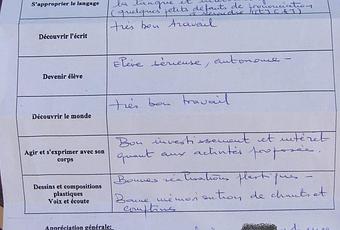 S'approprier le langage
la langue et
(quelques petits défauts de prononciation
Découvrir l'écrit
très bon travail
Devenir élève
élève sérieuse, autonome -
Découvrir le monde
très bon travail
Agir et s'exprimer avec son
corps
Bon investissement et intérêt
quant aux activités proposées.
Dessins et compositions
plastiques
Voix et écoute
Bonnes réalisations plastiques -
Bonne mémorisation de chants et
comptines
Appréciation générale: